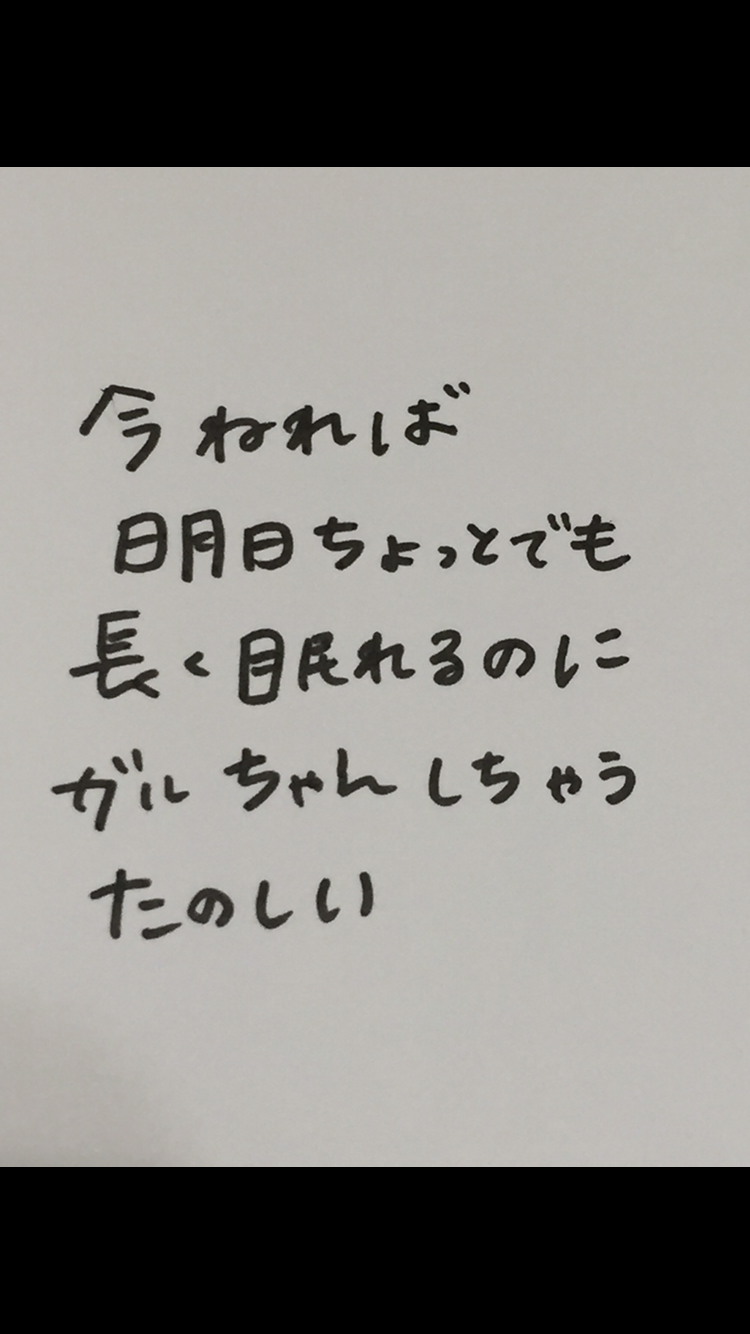 今ねれば
明日ちょっとでも
長く眠れるのに
ガルちゃんしちゃう
たのしい